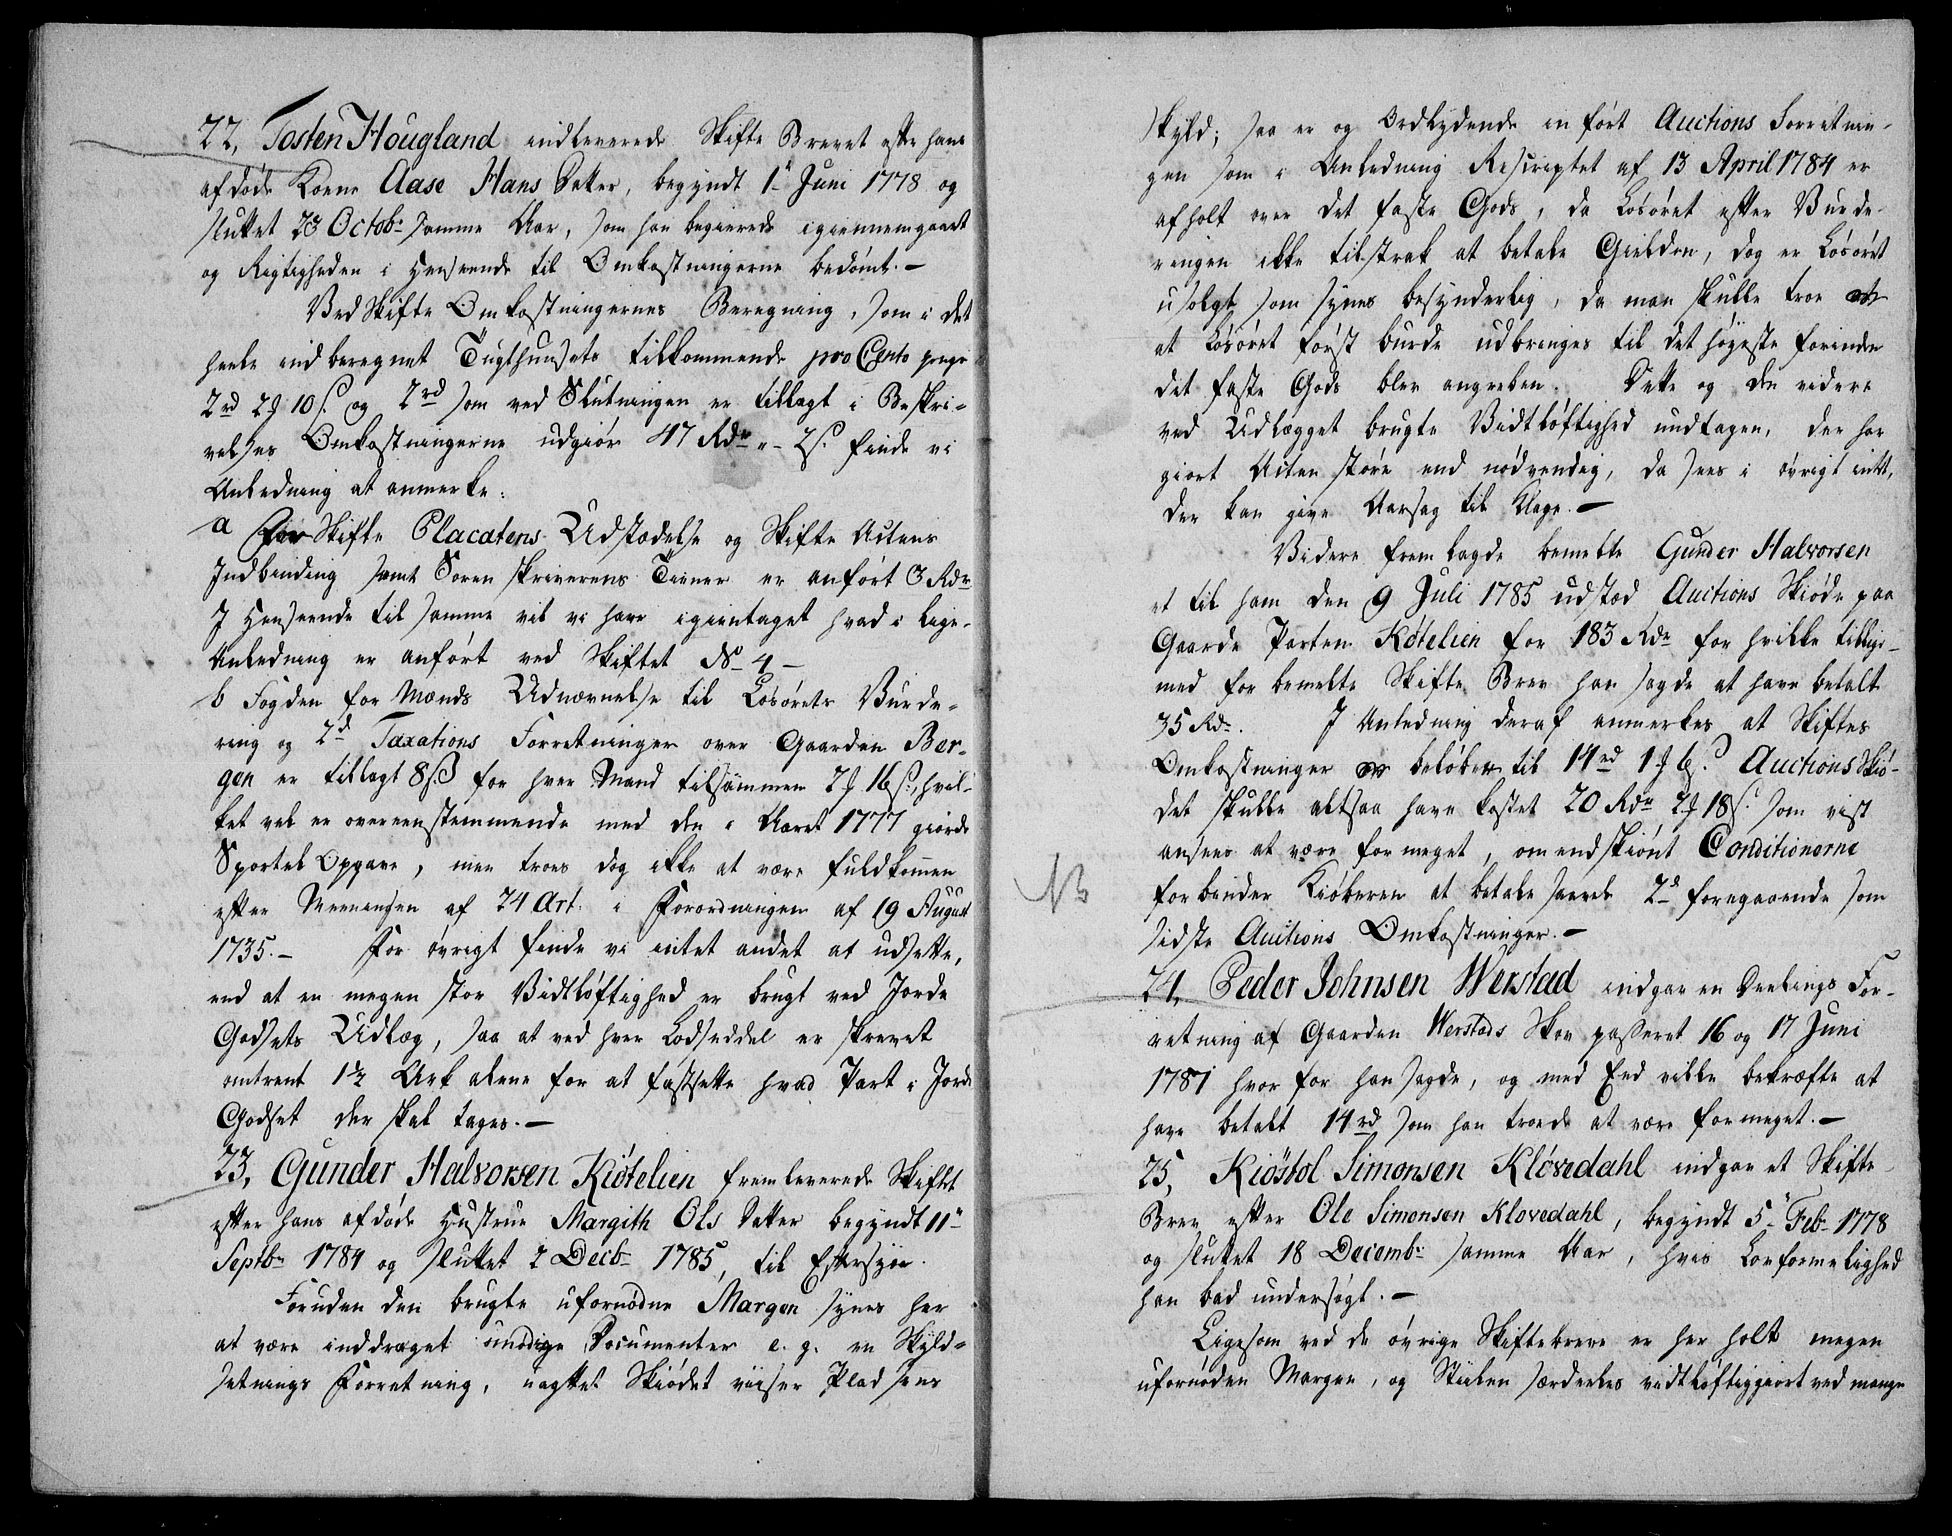 22, Tosten Hougland indleverede Skifte Brevet efter hans
afdøde Kone Aase Hans Datter, begyndt 1te Juni 1778 og
sluttet 23 Octobr samme Aar, som han begierede igiennemgaaet
og Rigtigheden i Henseende til Omkostningerne bedömt. -
Ved Skifte Omkostningernes Beregning, som i det
heele indberegnet Tugthuusets tilkommende pro Cento penge
2rd 2 10 s. og 2rd som ved Slutningen er tillagt i Beskri-
velses Omkostningerne udgiör 47 Rdr - 2 s. finde vi
Anledning at anmerke:
a For Skifte Placatens Udstædelse og Skifte Actens
Indbinding samt Sorenskriverens Tiener er anfört 3 Rdr
I Henseende til samme vil vi have igientaget hvad i lige-
Anledning er anfört ved Skiftet No 4 -
b Fogden for Mænds Udnævnelse til Lösörets Vurde-
ring og 2de Taxations Forretninger over Gaarden Ber-
gen er tillagt 8 s. for hver Mand tilsammen 2 16 s., hvil-
ket vel er overeenstemmende med den i Aaret 1777 giorde
Sportel Opgave, men troes dog ikke at være fuldkommen
efter Meeningen af 24 Art. i Forordningen af 19 August
1735. - For övrigt finde vi intet andet at udsette,
end at en megen stor Vidtlöftighed er brugt ved Jorde
Godsets Udlæg, saa at ved hver Lodseddel er skrevet
omtrent 1½ Ark alene for at fastsette hvad Part i Jorde
Godset der skal tages. -
23, Gunder Halvorsen Kiötelien fremleverede Skiftet
efter hans afdöde Hustrue Margith Ols Datter begyndt 11te
Septbr 1784 og sluttet 2 Decbr 1785, til Eftersyn.
Foruden den brugte ufornödne Margen synes her
at være inddraget unödige Documenter e. g. en Skyld-
setnings Forretning, uagtet Skiödet viiser Pladsens
Skyld; saa er og Ordlydende indfört Auctions Forretnin-
gen som i Anledning Rescriptet af 13 April 1784 er
afholt over det faste Gods, da Lösöret efter Vurde-
ringen ikke tilstrak at betale Gielden, dog er Lösöret
usolgt som synes besynderlig, da man skulle troe
at Lösöret först burde udbringes til det höyeste forinden
det faste Gods blev angreben. Dette og den videre
ved Udlægget brugte Vidtlöftighed undtagen, der har
giort Acten större end nödvendig, da sees i övrigt intet,
der kan give Aarsag til Klage. -
Videre fremlagde bemelte Gunder Halvorsen
et til ham den 9 Juli 1785 udstæd Auctions Skiöde paa
Gaarde Parten Kötelien for 183 Rdr for hvilke tillige-
med forbemelte Skifte Brev han sagde at have betalt
35 Rdr. I Anledning deraf anmerkes at Skiftes
Omkostninger belöber til 14rd 1 6 s. Auctions Skiö-
det skulle altsaa have kostet 20 Rdr 2 18 s. som vist
ansees at være formeget, omendskiönt Conditionerne
forbinder Kiöberen at betale saavel 2de foregaaende som
sidste Auctions Omkostninger. -
NB
24, Peder Johnsen Werstad indgav en Deelings For-
retning af Gaarden Werstads Skov passeret 16 og 17 Juni
1781 hvor for han sagde, og med Eed ville bekræfte at
have betalt 14rd som han troede at være formeget. -
25, Kiöstol Simonsen Klövedahl indgav et Skifte
Brev efter Ole Simonsen Klovedahl, begyndt 5te Feb. 1778
og sluttet 18 Decembr samme Aar, hvis Lovformelighed
han bad undersögt. -
Ligesom ved de övrige Skiftebreve er her holt megen
ufornöden Margen, og Stiilen særdeeles vidtlöftiggiort ved mange